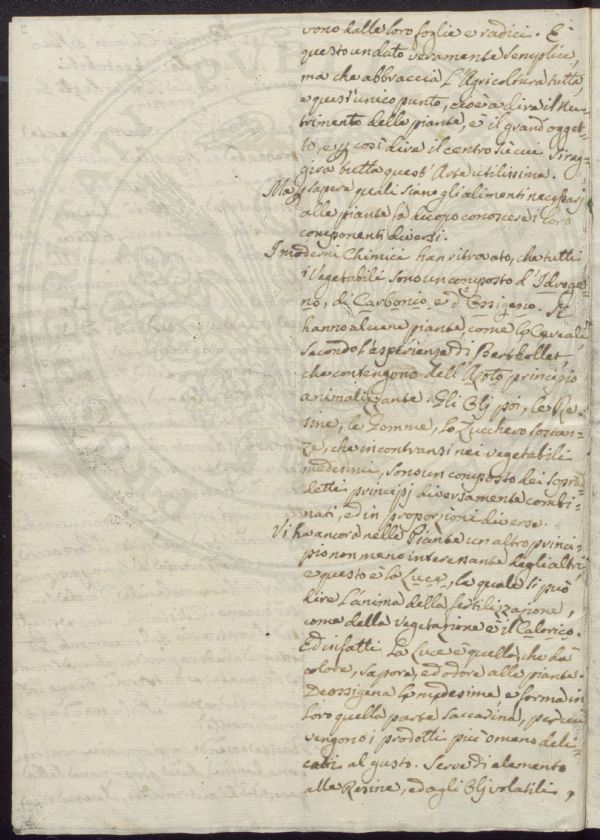 vono dalle loro foglie e radici. È
questo un dato veramente semplice,
ma che abbraccia l'Agricoltura tutta,
e quest'unico punto, cioè a dire il Nu-
trimento delle piante, è il grand'ogget-
to, e p così dire il centro su cui si rag-
gira tutta quest'Arte utilissima.
Ma p sapere quali siano gli alimenti necessarj
alle piante fa duopo conoscere i loro
componenti diversi.
I moderni Chimici han ritrovato, che tutti
i Vegetabili sono un composto d'Idroge-
no, di Carbonio, e d'Ossigeno. Vi
hanno alcune piante, come le Cereali,
secondo l'esperienze di Berthollet
che contengono dell'Azoto principio
animalizzante. Gli Olj poi, le Re-
sine, le Gomme, lo Zucchero sostan-
ze, che incontransi nei vegetabili
medesimi, sono un composto dei sopra-
detti principj diversamente combi-
nati, ed in proporzioni diverse.
Vi ha ancora nelle Piante un altro princi-
pio non meno interessante degli altri,
e questo è la Luce, la quale si può
dire l'anima della fertilizzazione,
come della vegetazione è il Calorico.
Ed infatti la Luce è quella, che dà
colore, sapore, ed odore alle piante.
Deossigena le medesime e forma in
loro quella parte saccarina, per cui
vengono i prodotti più o meno deli-
cati al gusto. Serve di elemento
alle Resine, ed agli Olj volatili,